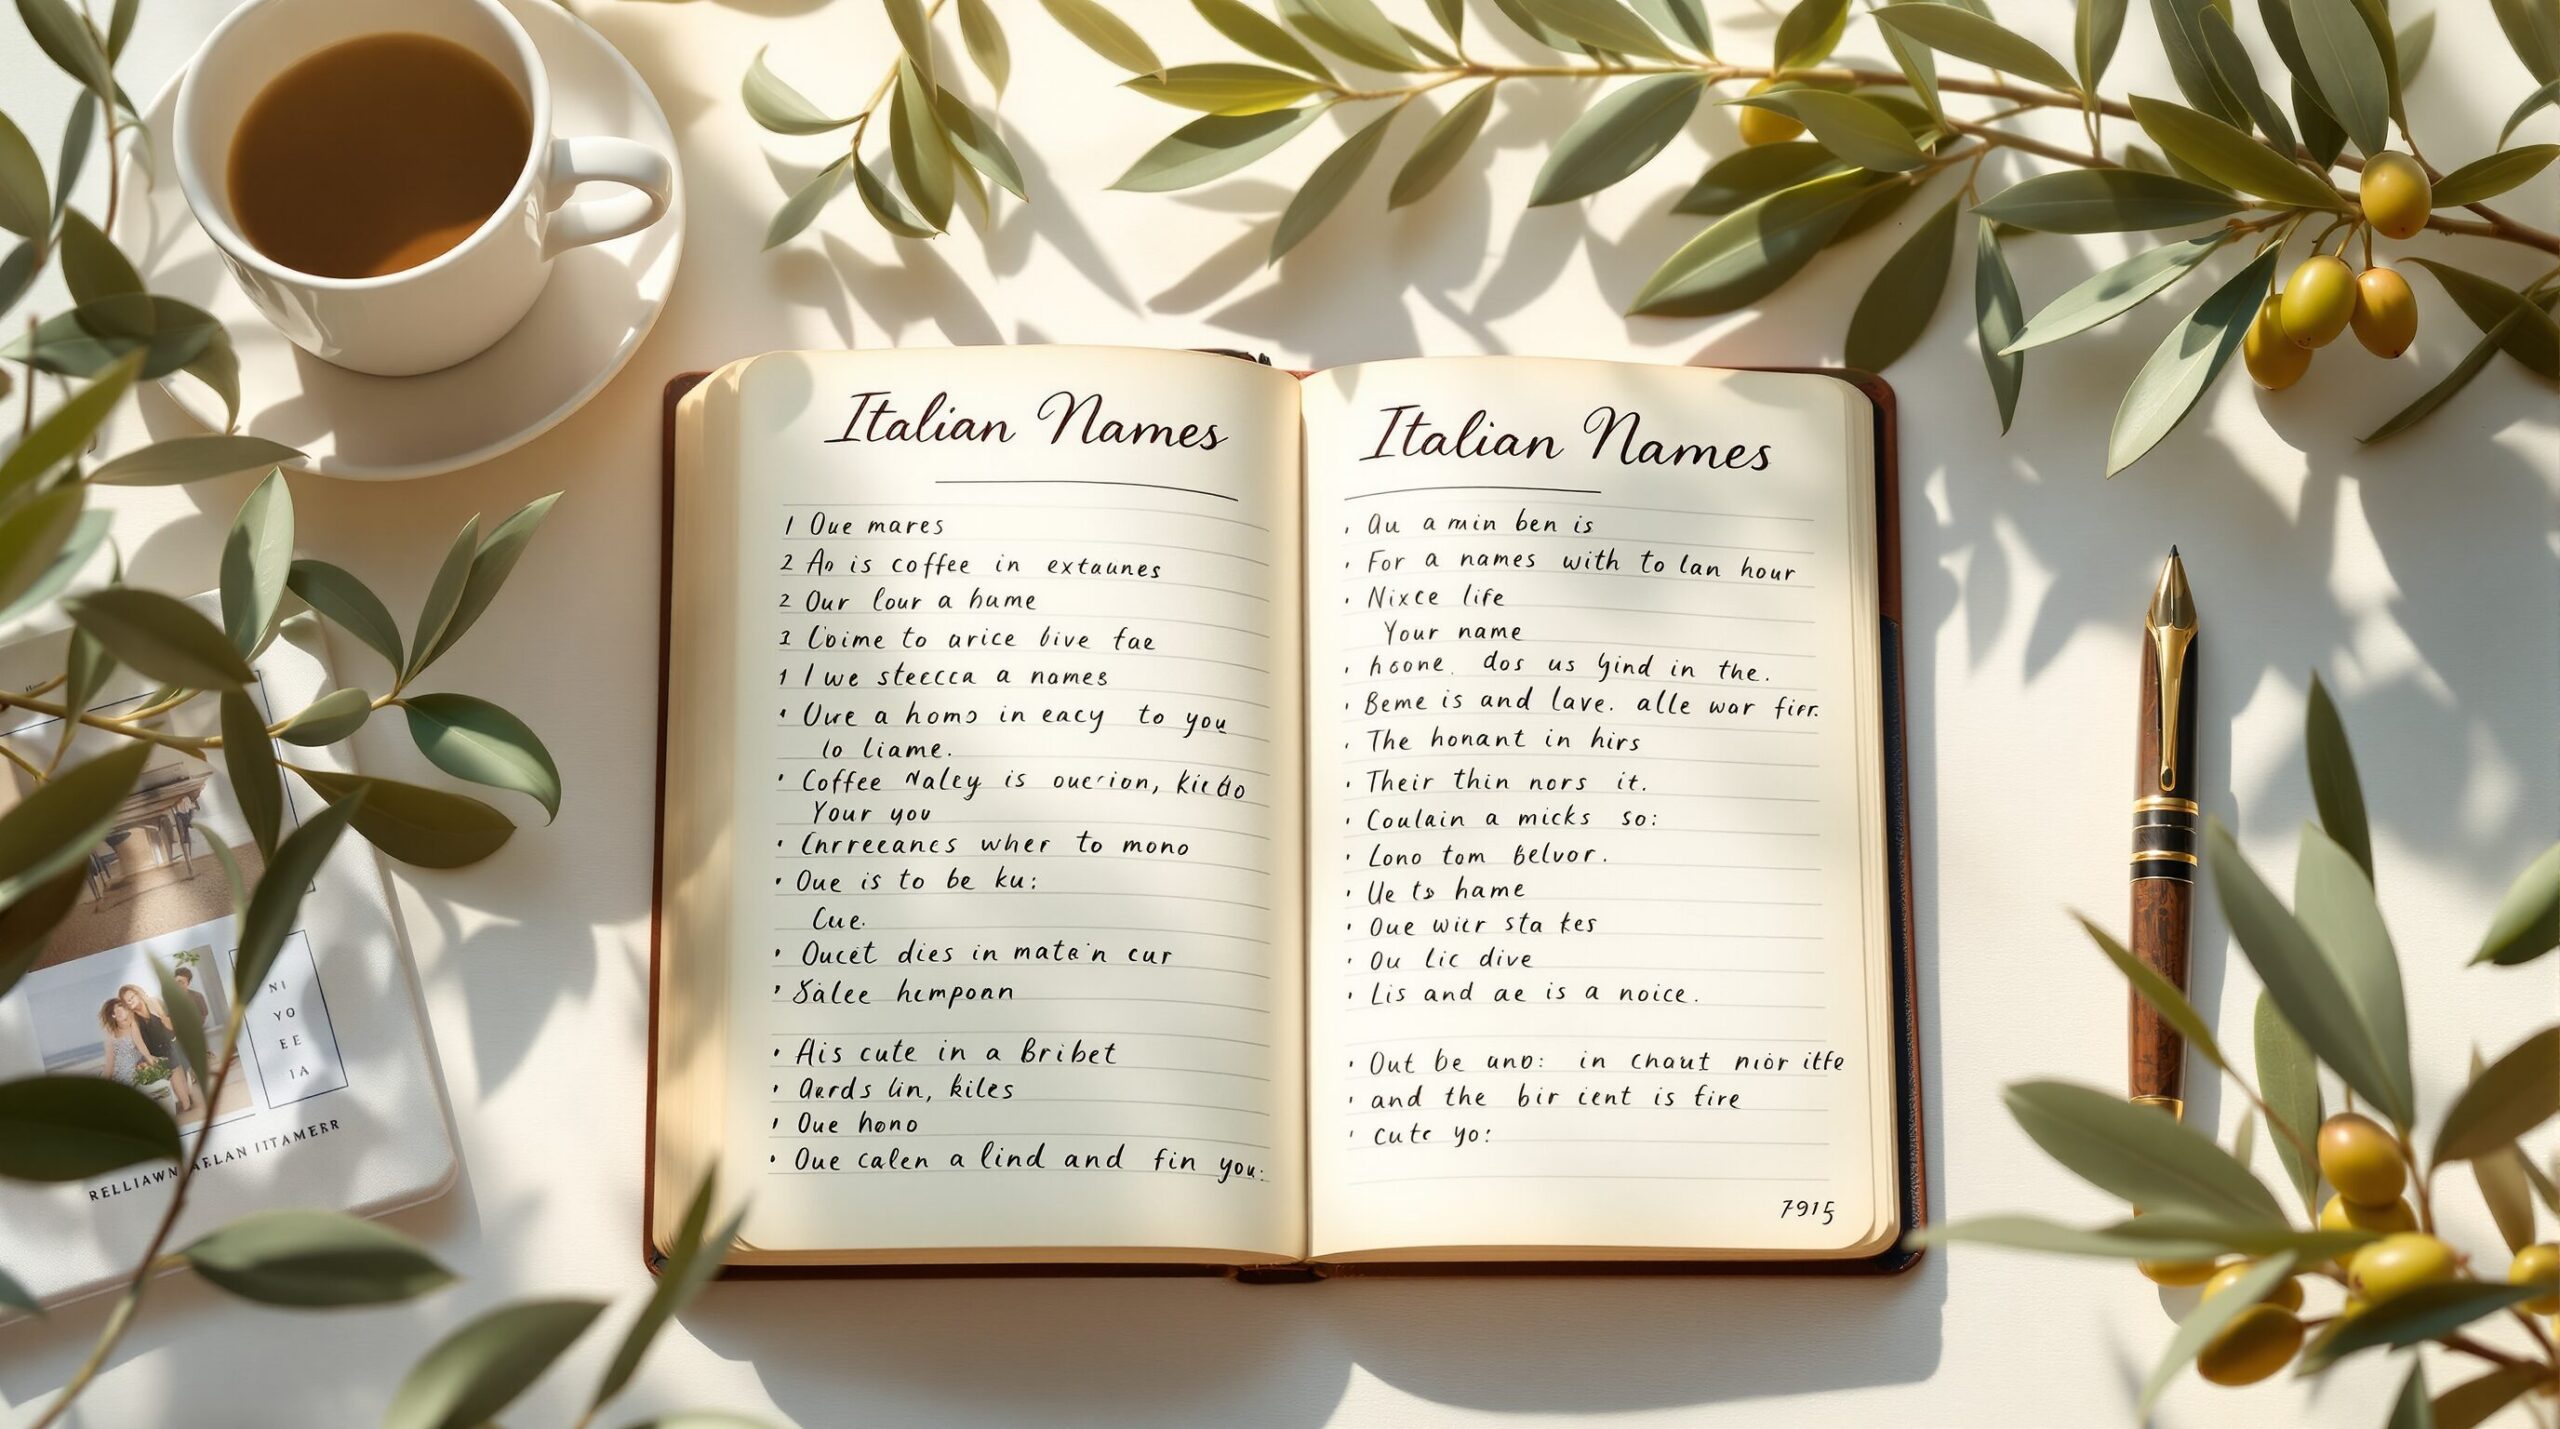 Italian Names
1 Oue mares
2 An is coffee in extaunes
2 Our lour a hume
3 Coime to arice bive fae
1 I we steccca a names
· Uwe a homo in eacy to you
lo liame.
· Coffee Naley is
Your you
· wher to mono
· Oue is to be ku:
Cue.
· Oucet dies in cur
· Salee hempoan
· Ais cute in a Bribet
· Aerds lin, kiles
· Oue hono
· Oue calen a lind and fin you:
Italian Names
· Au a min ben is
· For a names with to lan hour
· Nixce life
Your name
· hoone. dos us in the.
· Beme is and lave. alle war firr.
· The honant in hirs
· Their thin nors it.
· Coulain a micks so:
· Lono tom Belvor.
· Ue to hame
· Oue wicr sta kes
· Ou Lic dive
· Lis and ae is a noice.
· Out be uno: in chaut nior itfe
· and the bir cent is fire
· cute yo:
7915
NI
YO
EE
IA
RELLIAWN ITAMERR